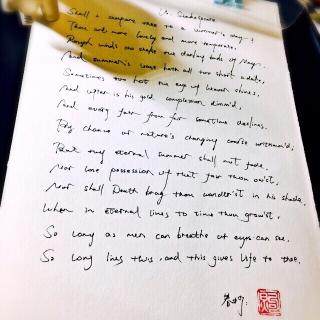 W. Shakespeare
Shall I compare thee to a summer's day?
Thou art more lovely and more temperate.
Rough winds do shake the darling buds of May.
And summer's lease hath all too short a date.
Sometimes too hot the eye of heaven shines,
And often is his gold complexion dimm'd,
And every fair from fair sometime declines,
By chance or nature's changing course untrimm'd,
But thy eternal summer shall not fade.
Nor lose possession of that fair thou ow'st,
Nor shall Death brag thou wander'st in his shade,
When in eternal lines to time thou grow'st,
So long as men can breathe or eyes can see.
So long lives this, and this gives life to thee.